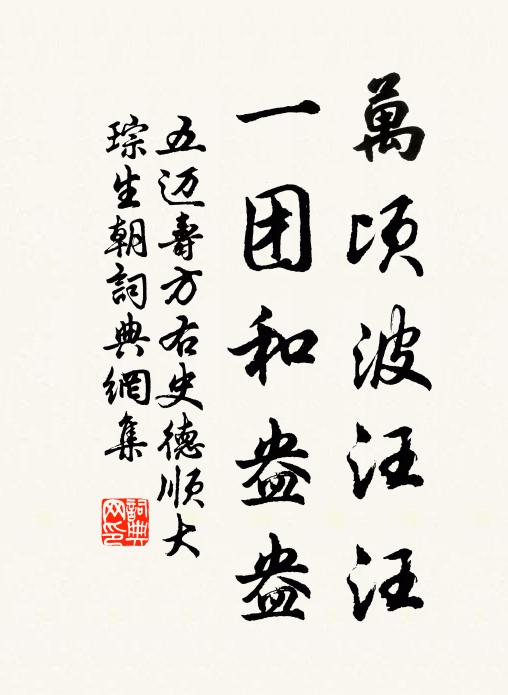 萬頃波汪汪
一团和盎盎
五迈壽方右史德順大
琮生朝詞典網集
詞典
网印